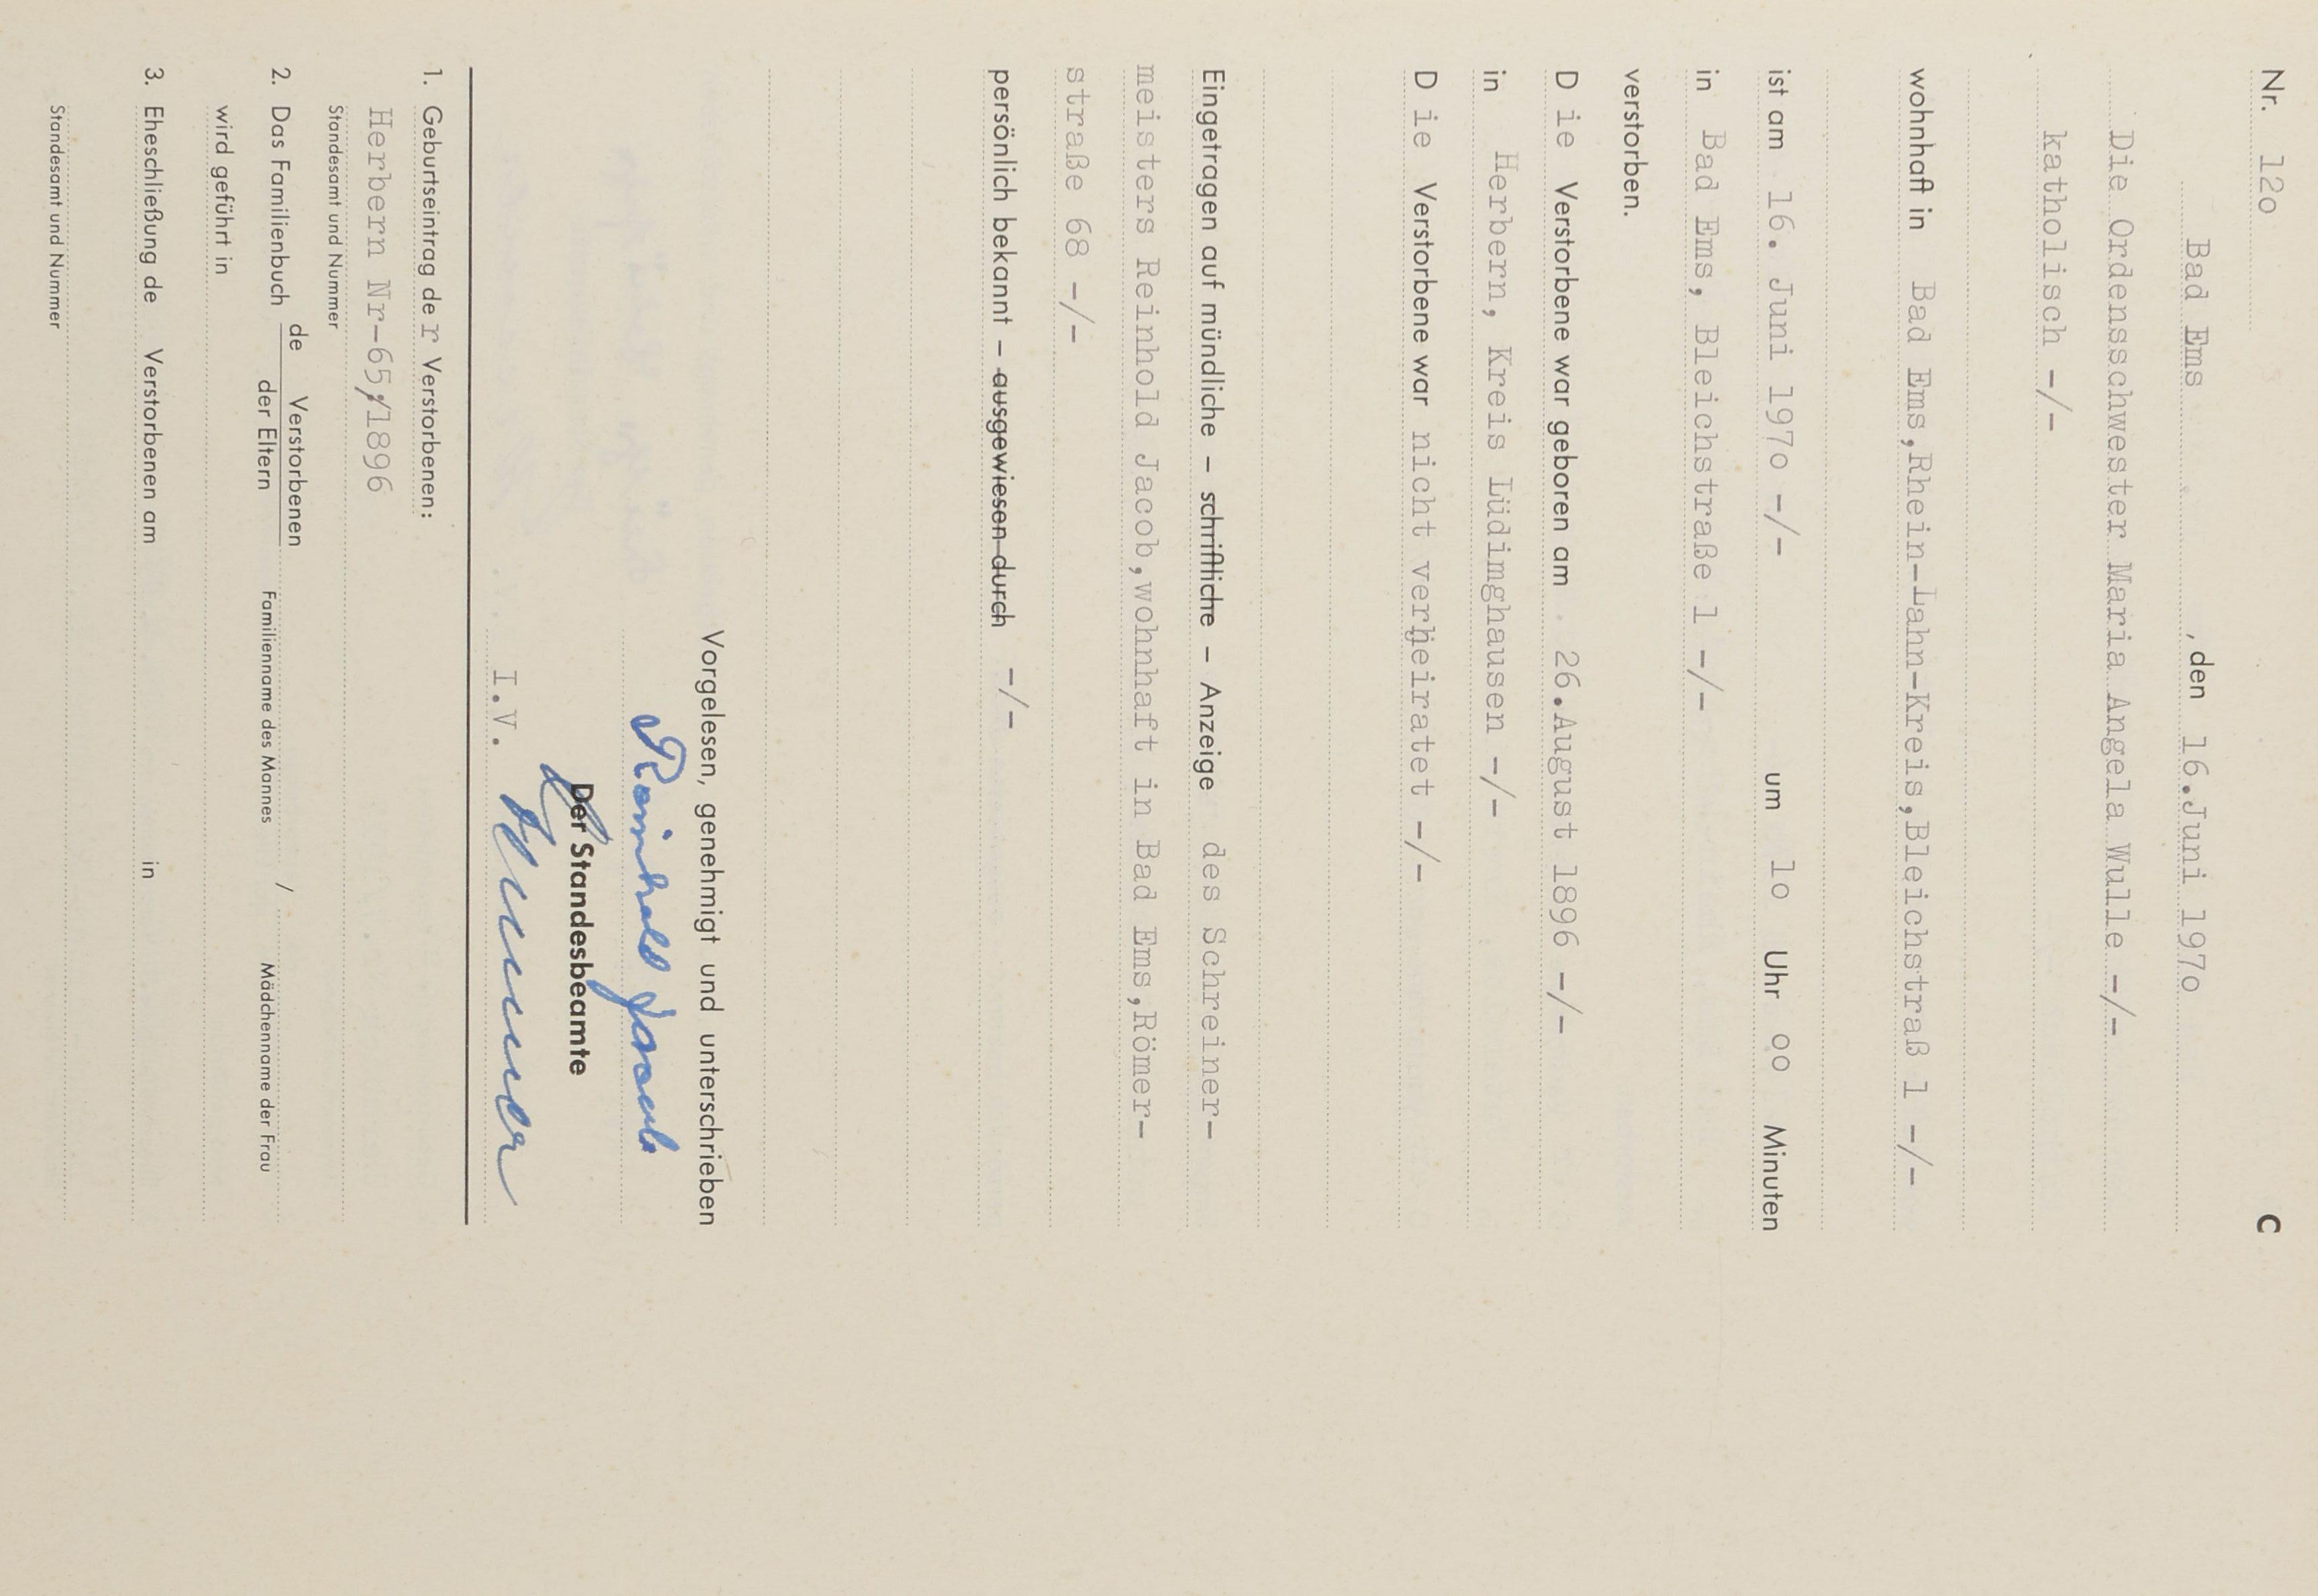 Nr. 12o C
Bad Ems , den 16.Juni 197o
Die Ordensschwester Maria Angela Wulle -/-
katholisch -/-
wohnhaft in Bad Ems,Rhein-Lahn-Kreis,Bleichstraß 1 -/-
ist am 16. Juni 197o -/- um 1o Uhr oo Minuten
in Bad Ems, Bleichstraße 1 -/-
verstorben.
D ie Verstorbene war geboren am 26.August 1896 -/-
in Herbern, Kreis Lüdinghausen -/-
D ie Verstorbene war nicht verheiratet -/-
Eingetragen auf mündliche – schriftliche – Anzeige des Schreiner-
meisters Reinhold Jacob,wohnhaft in Bad Ems,Römer-
straße 68 -/-
persönlich bekannt – ausgewiesen durch -/-
Vorgelesen, genehmigt und unterschrieben
Reinhold Jacob
Der Standesbeamte
I.V.
1. Geburtseintrag de r Verstorbenen:
Herbern Nr-65/1896
Standesamt und Nummer
2. Das Familienbuch de Verstorbenen
der Eltern
Familienname des Mannes / Mädchenname der Frau
wird geführt in
3. Eheschließung de Verstorbenen am in
Standesamt und Nummer